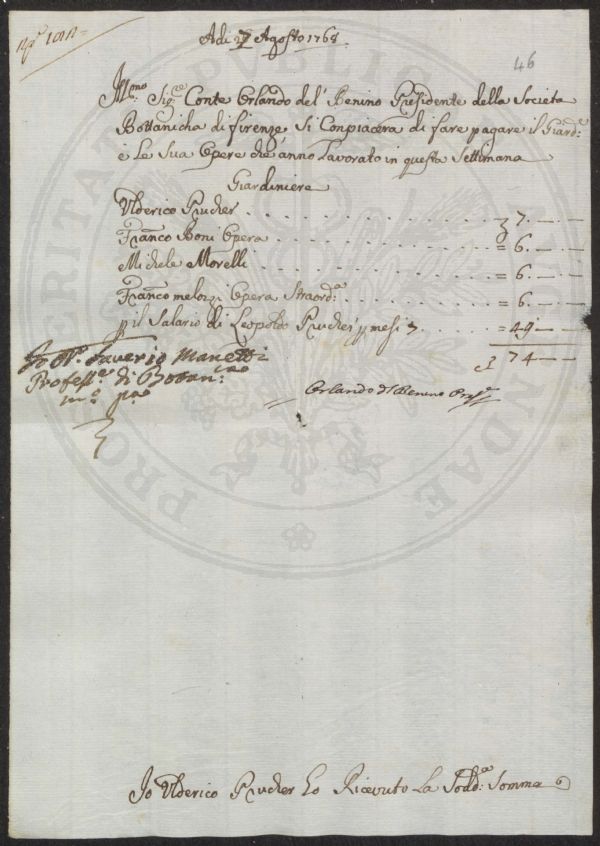 Adi 27 Agosto 1768
46
Ill:mo Sig:re Conte Orlando del Benino Presidente della Societa
Bottanicha di firenze Si Conpiacera di fare pagare il Giard:e
e Le Sua Opere che ànno Lavorato in questa Settimana
Giardiniere
Ulderico Prucher . . . . . . . . 7. — —
Franco Boni Opera . . . . . . . . = 6. — —
Michele Morelli . . . . . . . . = 6. — —
Franco melozzi Opera Straord:a . . . . = 6. — —
p il Salario di Leopoldo Prucher p mesi 7 . . . = 49 — —
74 — —
Io Dr. Saverio Manetti
Profess:e di Botan:ca
m:o p:a
Orlando del Benino Pres:e
Io Ulderico Prucher ho Ricevuto La Sodd:a Somma
PRO VERITATE PUBLICA